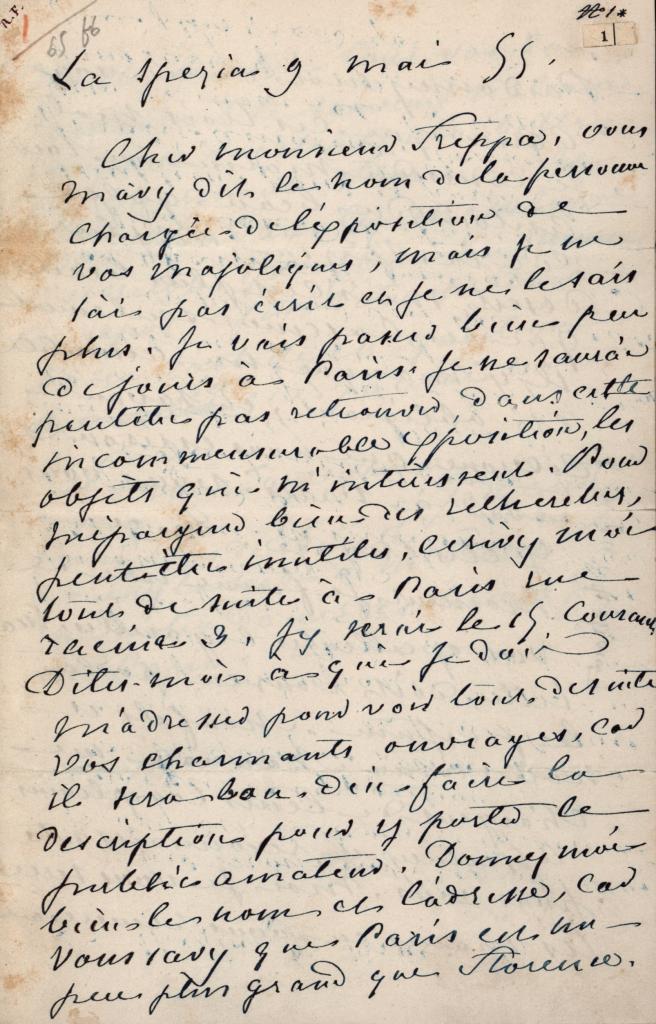 R.F.
1
65 66
N°1*
1
La Spezia 9 mai 55.
Cher monsieur Freppa, vous
m'avez dit le nom de la personne
chargée de l'exposition de
vos majoliques, mais je ne
l'ai pas écrit et je ne le sais
plus. Je vais passer bien peu
de jours à Paris. Je ne saurai
peutêtre pas retrouver, dans cette
incommensurable exposition, les
objets qui m'intéressent. Pour
m'épargner bien des recherches,
peutêtre inutiles, écrivez moi
tout de suite à Paris rue
racine 3. J'y serai le 15 Courant
Dites-moi à qui je dois
m'adresser pour voir tout de suite
vos charmants ouvrages, car
il sera bon d'en faire la
description pour y porter le
public amateur. Donnez moi
bien le nom et l'adresse, car
vous savez que Paris est un
peu plus grand que Florence.